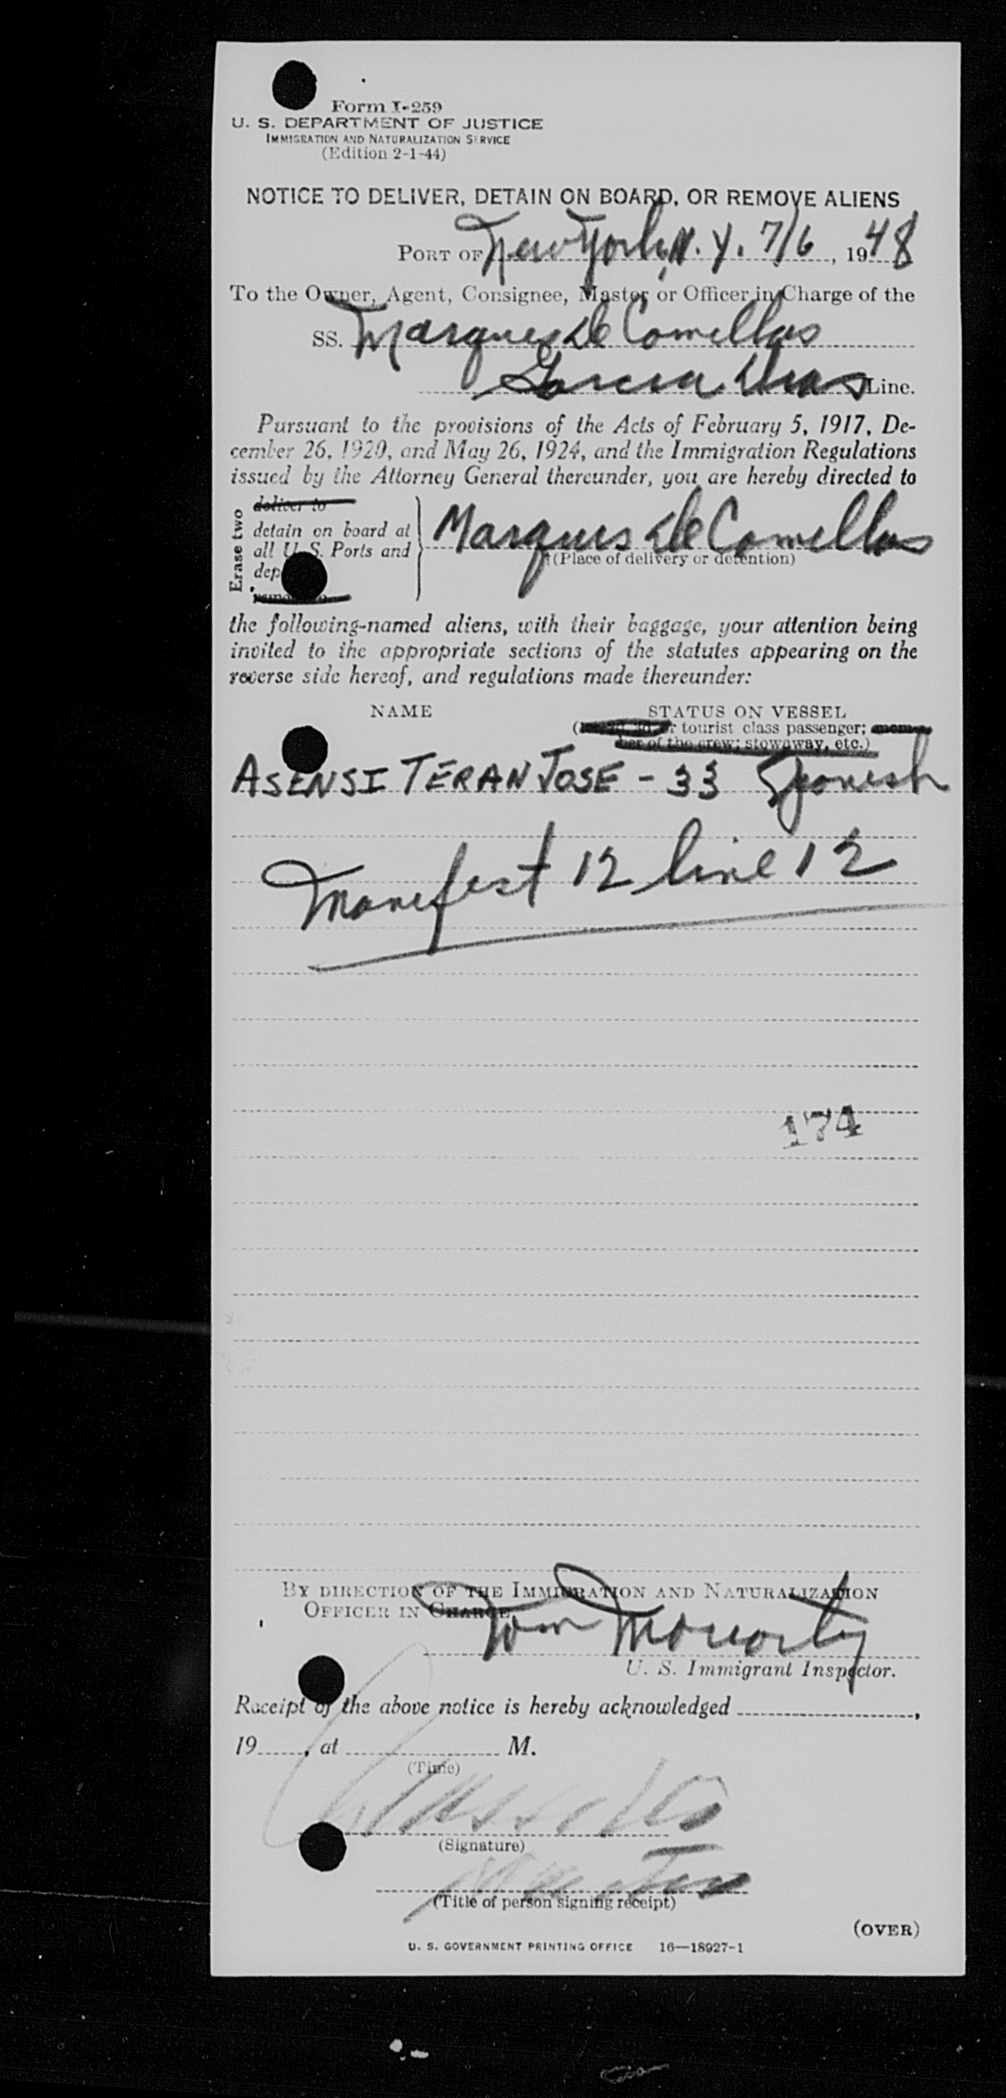 Form I-259
U. S. DEPARTMENT OF JUSTICE
IMMIGRATION AND NATURALIZATION SERVICE
(Edition 2-1-44)
NOTICE TO DELIVER, DETAIN ON BOARD, OR REMOVE ALIENS
PORT OF New York, N. Y. 7/6, 1948
To the Owner, Agent, Consignee, Master or Officer in Charge of the
SS. Marques De Comellas
Garcia Dias Line.
Pursuant to the provisions of the Acts of February 5, 1917, De-
cember 26, 1920, and May 26, 1924, and the Immigration Regulations
issued by the Attorney General thereunder, you are hereby directed to
Erase two
deliver to
detain on board at
all U. S. Ports and
dep
Marques De Comellas
(Place of delivery or detention)
the following-named aliens, with their baggage, your attention being
invited to the appropriate sections of the statutes appearing on the
reverse side hereof, and regulations made thereunder:
NAME STATUS ON VESSEL
r tourist class passenger; mem-
ber of the crew; stowaway, etc.)
ASENSI TERAN JOSE - 33 Spanish
Manifest 12 line 12
174
BY DIRECTION OF THE IMMIGRATION AND NATURALIZATION
OFFICER IN CHARGE,
Tom Moriarty
U. S. Immigrant Inspector.
Receipt of the above notice is hereby acknowledged ,
19 , at M.
(Time)
(Signature)
Master
(Title of person signing receipt)
(OVER)
U. S. GOVERNMENT PRINTING OFFICE 16—18927-1